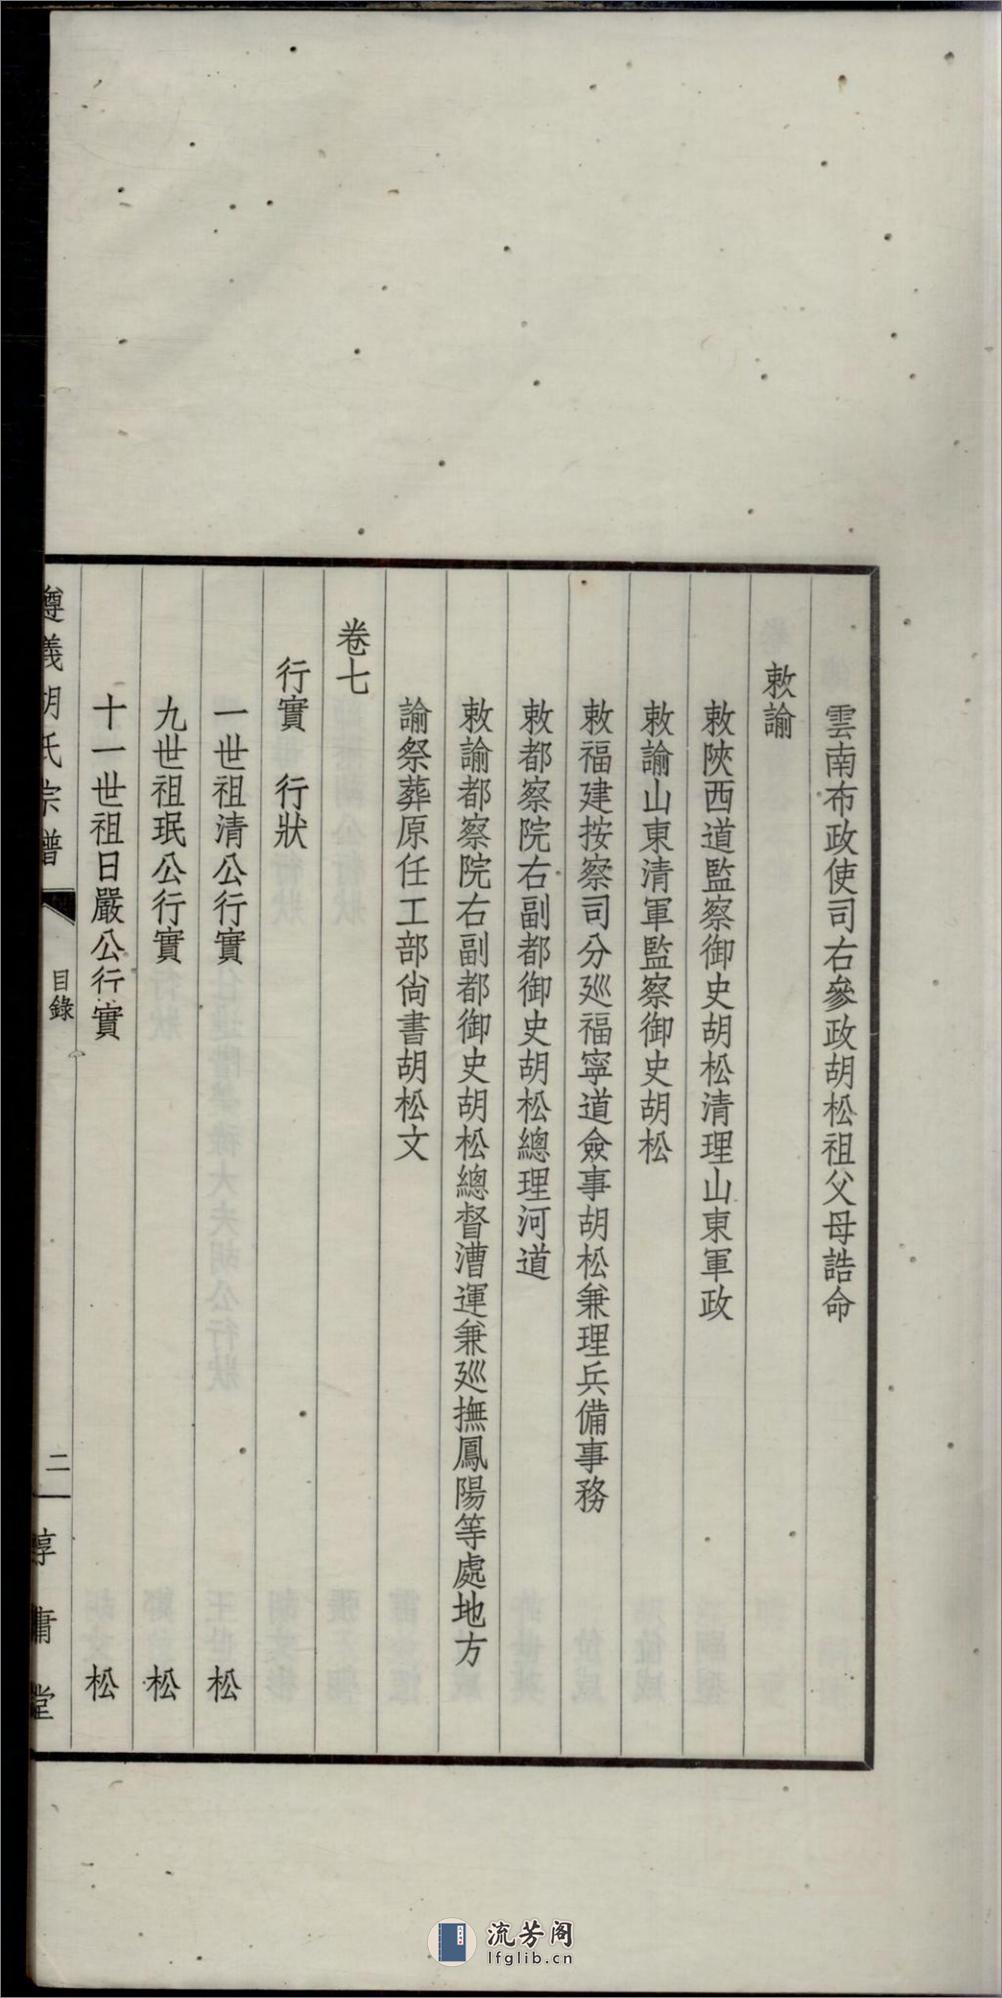 雲南布政使司右參政胡松祖父母誥命
敕諭
敕陝西道監察御史胡松清理山東軍政
敕諭山東清軍監察御史胡松
敕福建按察司分廵福寧道僉事胡松兼理兵備事務
敕都察院右副都御史胡松總理河道
敕諭都察院右副都御史胡松總督漕運兼廵撫鳳陽等處地方
諭祭葬原任工部尙書胡松文
卷七
行實 行狀
一世祖清公行實 松
九世祖珉公行實 松
十一世祖日嚴公行實 松
遵義胡氏宗譜 目錄 二 惇庸堂
流芳阁
lfglib.cn